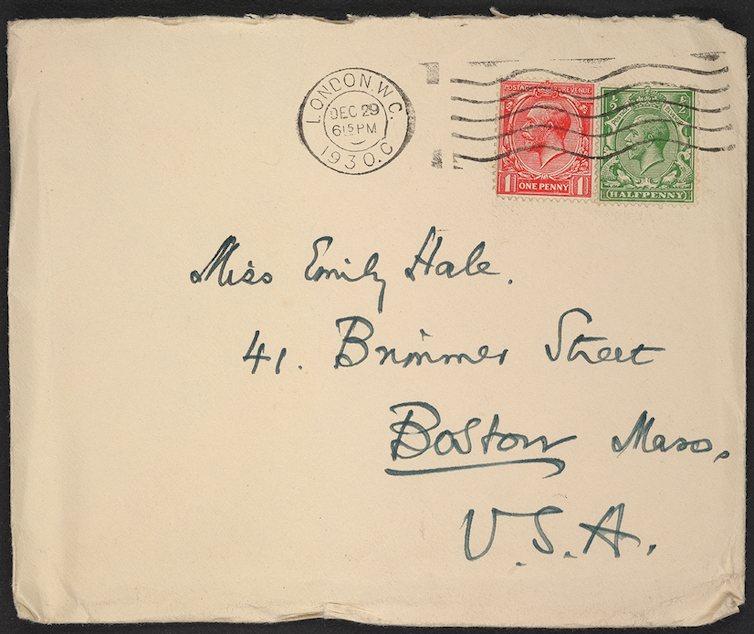 LONDON.W.C.
DEC 29
6 15 PM
1930.C
POSTAGE REVENUE
ONE PENNY
1 1
HALFPENNY
Miss Emily Hale.
41. Brimmer Street
Boston Mass.
U.S.A.